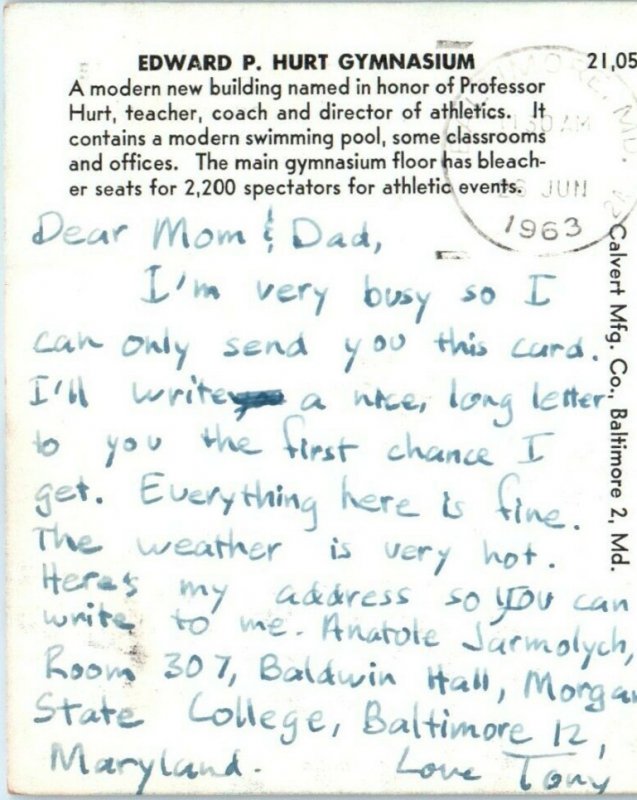 EDWARD P. HURT GYMNASIUM
21,05
A modern new building named in honor of Professor
Hurt, teacher, coach and director of athletics. It
contains a modern swimming pool, some classrooms
and offices. The main gymnasium floor has bleach-
er seats for 2,200 spectators for athletic events.
BALTIMORE, MD.
11 30 AM
JUN
1963
Dear Mom & Dad,
I'm very busy so I
can only send you this card.
I'll write a nice, long letter
to you the first chance I
get. Everything here is fine.
The weather is very hot.
Here's my address so you can
write to me. Anatole Jarmolych,
Room 307, Baldwin Hall, Morgan
State College, Baltimore 12,
Maryland. Love Tony
Calvert Mfg. Co., Baltimore 2, Md.